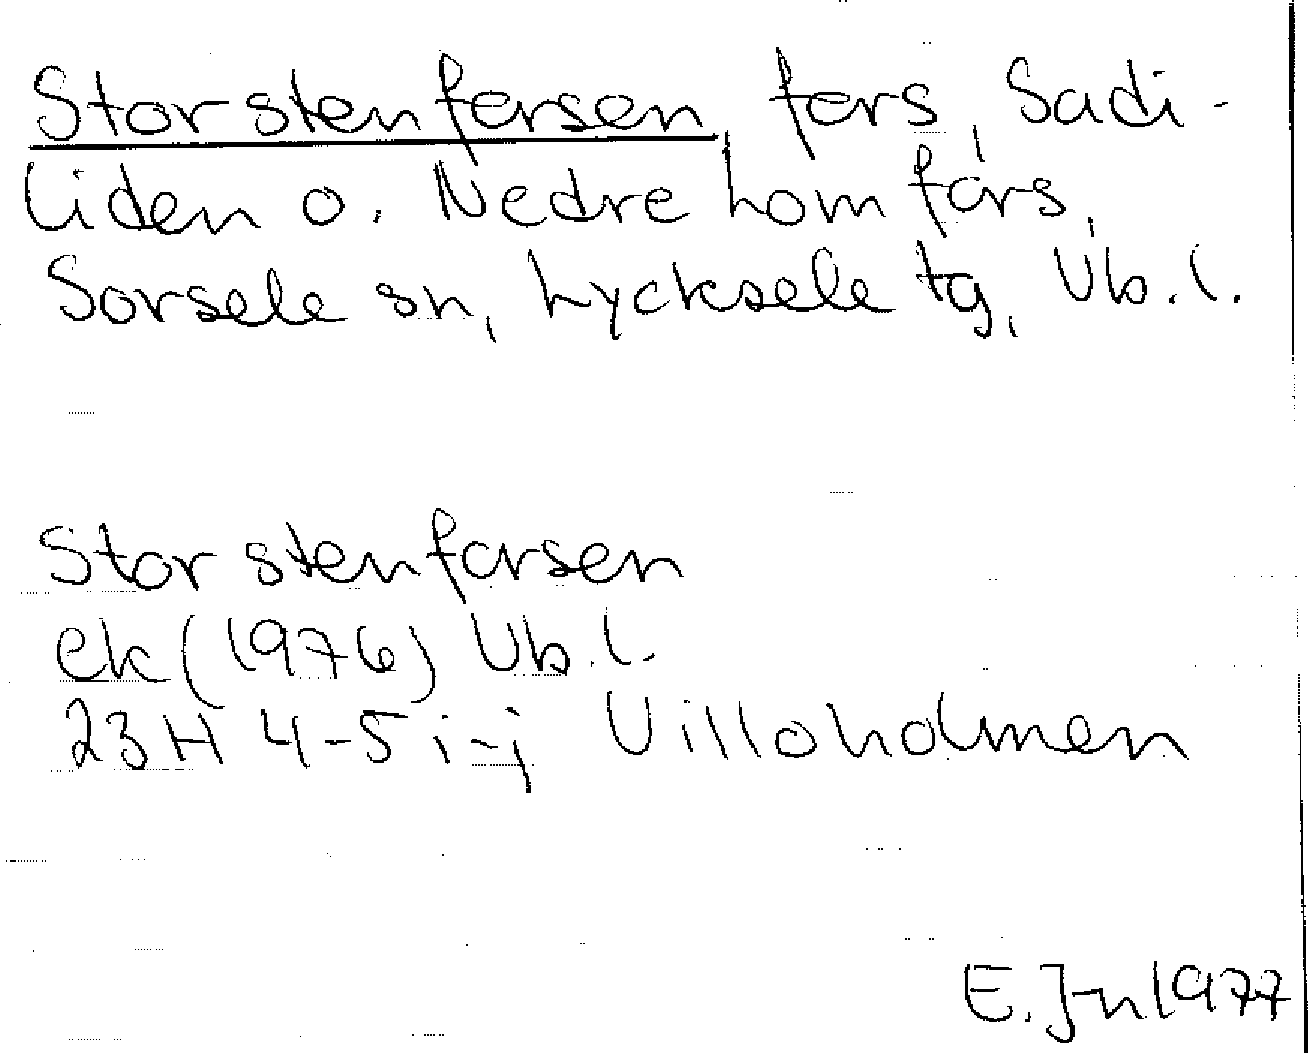 Storstenforsen, fors, Sadi-
liden o. Nedre homfors,
Sorsele sn, Lycksele tg, Vb.l.
Storstenforsen
ek (1976) Vb.l.
23H 4-5 i-j Villoholmen
E. J-n 1977